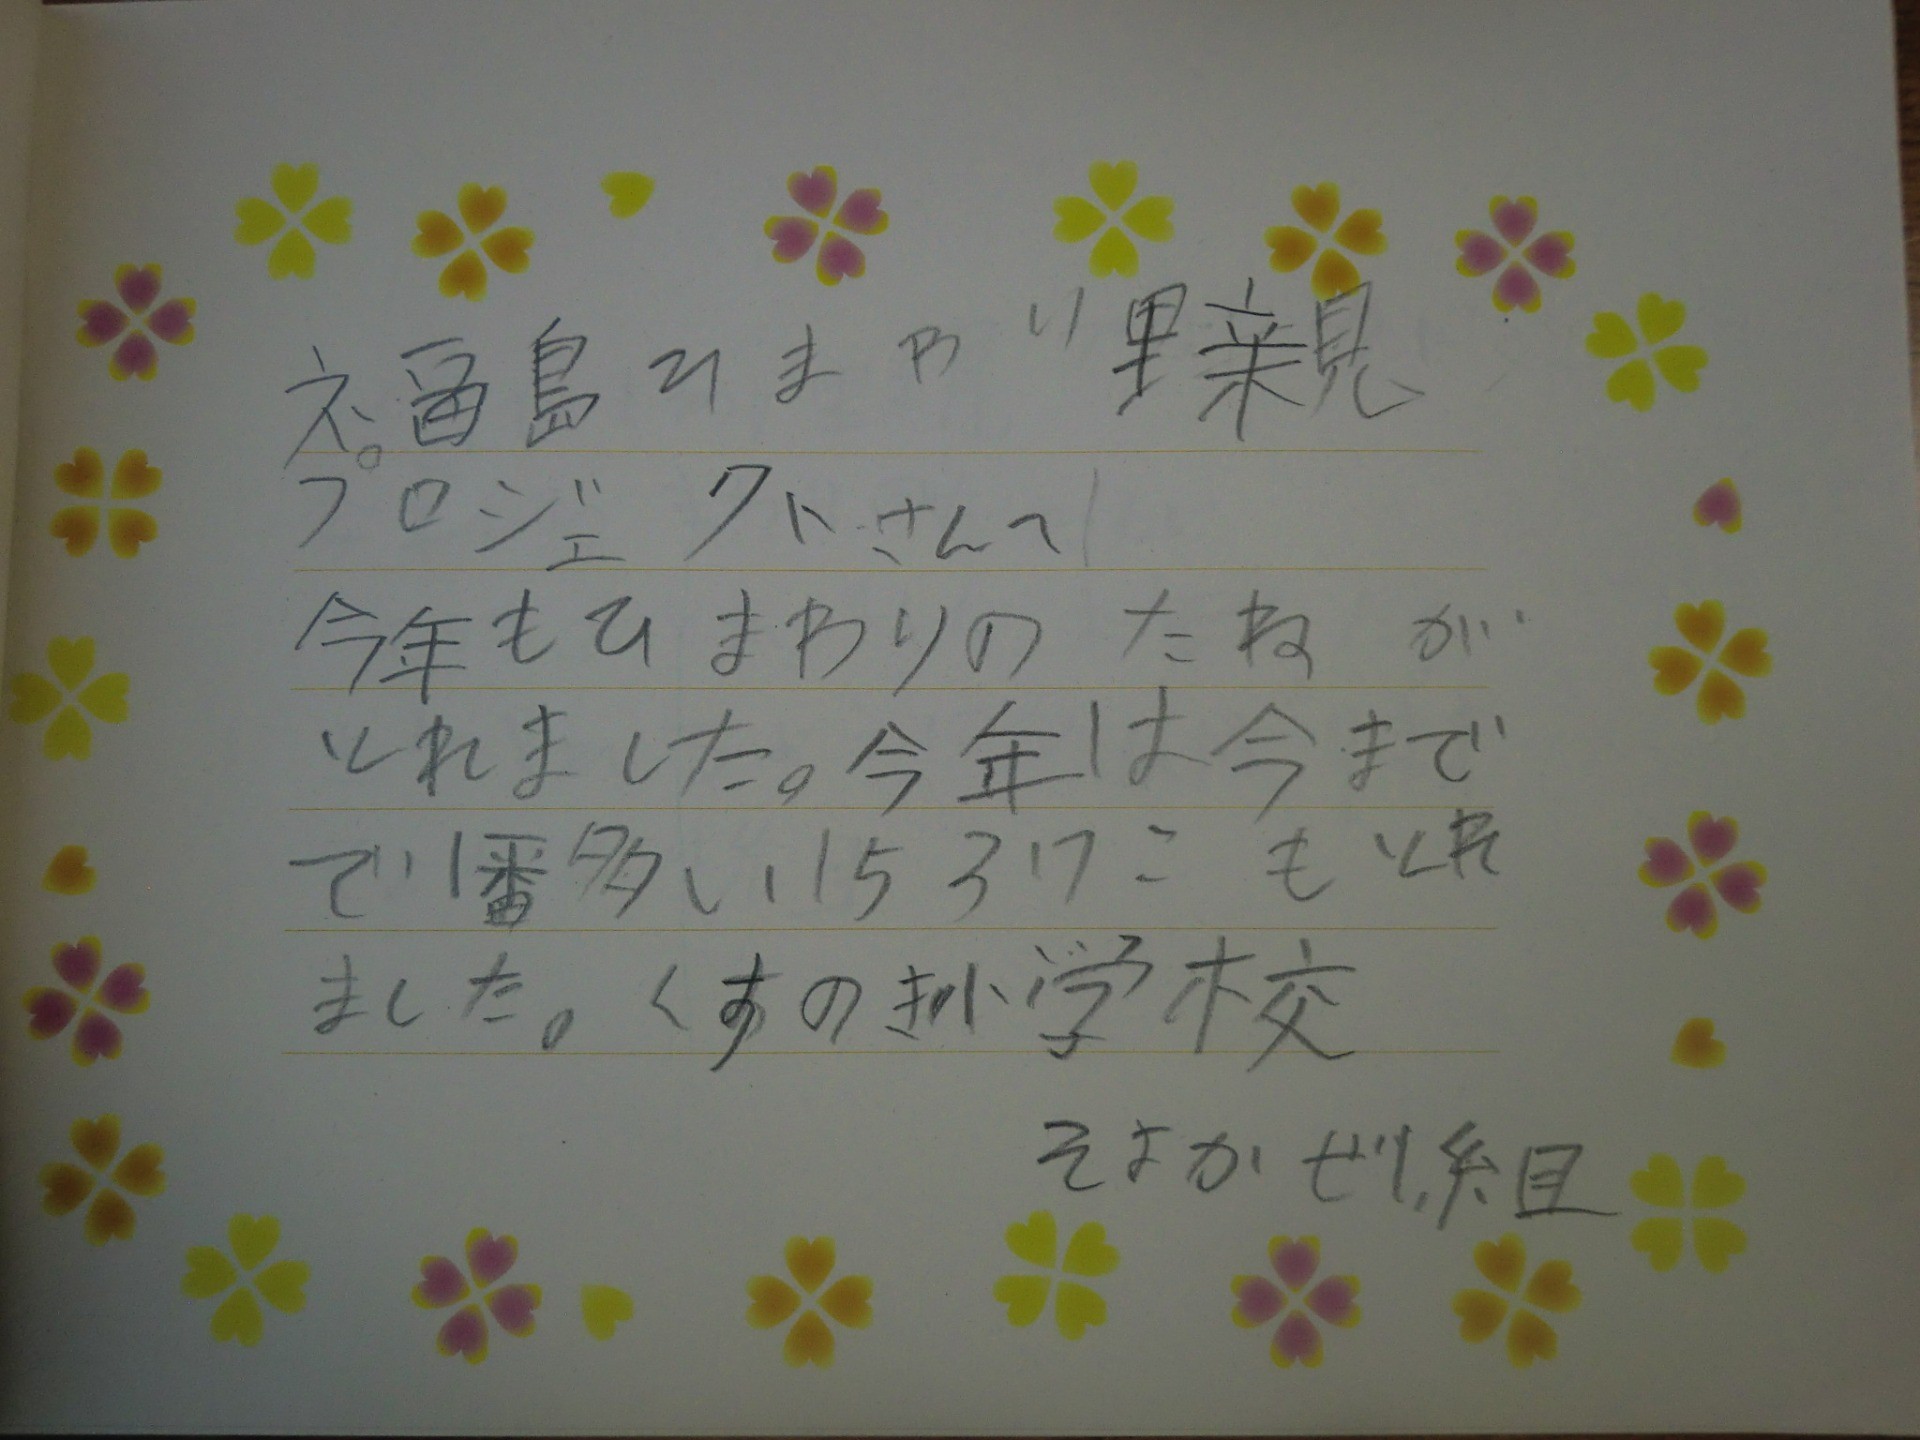 福島ひまわり里親
プロジェクトさんへ
今年もひまわりのたねが
とれました。今年は今まで
で1番多い15317こもとれ
ました。くすのき小学校
そよかぜ組